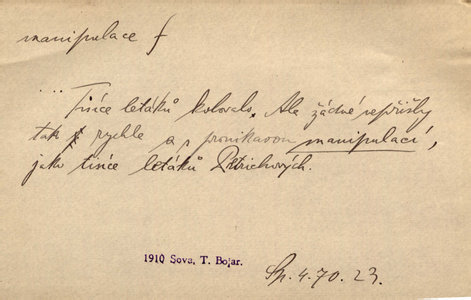 manipulace f
... Tisíce letáků kolovalo. Ale žádné nepřišly
tak rychle a pronikavou manipulací,
jako tisíce letáků Petrichových.
1910 Sova, T. Bojar.
Sp. 4.70.23.